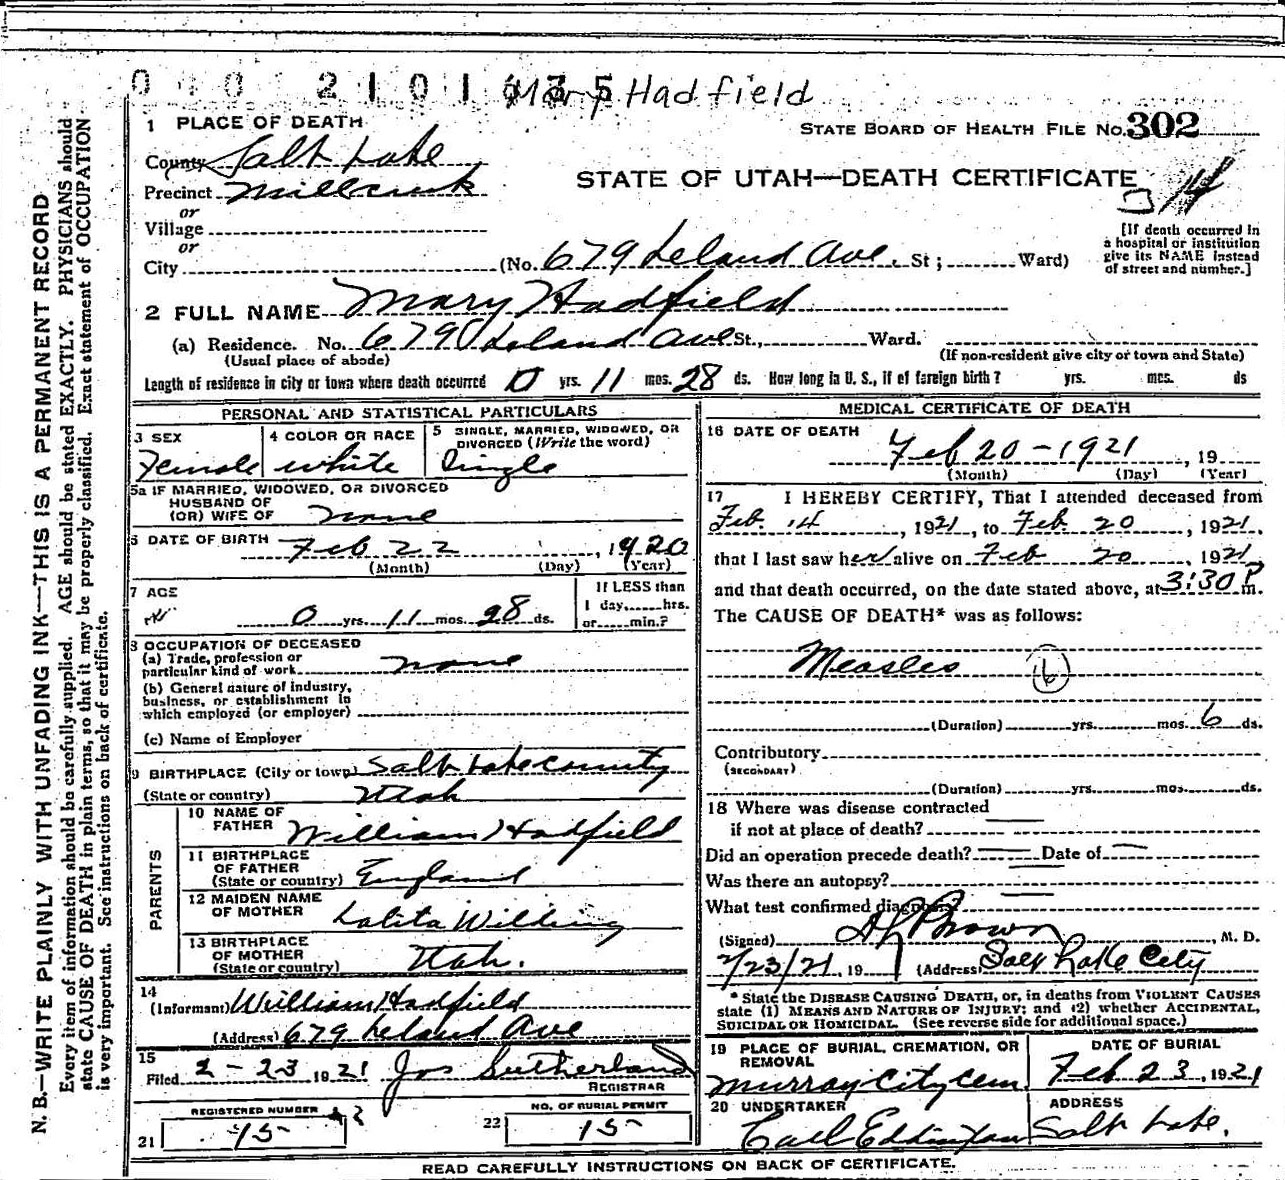 Mary Hadfield
1 PLACE OF DEATH
STATE BOARD OF HEALTH FILE No. 302
County Salt Lake
STATE OF UTAH—DEATH CERTIFICATE
Precinct Millcreek
or
Village
or
City (No. 679 Leland Ave. St; Ward)
[If death occurred in
a hospital or institution
give its NAME instead
of street and number.]
2 FULL NAME Mary Hadfield
(a) Residence. No. 679 Leland Ave St., Ward.
(Usual place of abode) (If non-resident give city or town and State)
Length of residence in city or town where death occurred 0 yrs. 11 mos. 28 ds. How long in U. S., if of foreign birth? yrs. mos. ds
PERSONAL AND STATISTICAL PARTICULARS
3 SEX Female
4 COLOR OR RACE white
5 SINGLE, MARRIED, WIDOWED, OR
DIVORCED (Write the word)
Single
5a IF MARRIED, WIDOWED, OR DIVORCED
HUSBAND OF
(OR) WIFE OF none
6 DATE OF BIRTH Feb 22, 1920
(Month) (Day) (Year)
7 AGE
0 yrs. 11 mos. 28 ds.
If LESS than
1 day, hrs.
or min.?
8 OCCUPATION OF DECEASED
(a) Trade, profession or
particular kind of work none
(b) General nature of industry,
business, or establishment in
which employed (or employer)
(c) Name of Employer
9 BIRTHPLACE (City or town) Salt Lake County
(State or country) Utah
PARENTS
10 NAME OF
FATHER William Hadfield
11 BIRTHPLACE
OF FATHER
(State or country) England
12 MAIDEN NAME
OF MOTHER Lolita Wilding
13 BIRTHPLACE
OF MOTHER
(State or country) Utah.
14
(Informant) William Hadfield
(Address) 679 Leland Ave
15
Filed 2-23 1921 Jos Sutherland
REGISTRAR
REGISTERED NUMBER
21 15
NO. OF BURIAL PERMIT
22 15
MEDICAL CERTIFICATE OF DEATH
16 DATE OF DEATH
Feb 20-1921, 19
(Month) (Day) (Year)
17 I HEREBY CERTIFY, That I attended deceased from
Feb. 14, 1921, to Feb. 20, 1921.
that I last saw her alive on Feb 20, 1921
and that death occurred, on the date stated above, at 3:30 P m.
The CAUSE OF DEATH* was as follows:
Measles 6
(Duration) yrs. mos. 6 ds.
Contributory
(SECONDARY)
(Duration) yrs. mos. ds.
18 Where was disease contracted
if not at place of death?
Did an operation precede death? Date of
Was there an autopsy?
What test confirmed diagnosis
(Signed) Brown, M. D.
2/23/21, 19 (Address) Salt Lake City
* State the DISEASE CAUSING DEATH, or, in deaths from VIOLENT CAUSES
state (1) MEANS AND NATURE OF INJURY; and (2) whether ACCIDENTAL,
SUICIDAL OR HOMICIDAL. (See reverse side for additional space.)
19 PLACE OF BURIAL, CREMATION, OR
REMOVAL
Murray City Cem.
DATE OF BURIAL
Feb 23, 1921
20 UNDERTAKER
Carl Eddington
ADDRESS
Salt Lake.
READ CAREFULLY INSTRUCTIONS ON BACK OF CERTIFICATE.
N. B.—WRITE PLAINLY WITH UNFADING INK—THIS IS A PERMANENT RECORD
Every item of information should be carefully supplied. AGE should be stated EXACTLY. PHYSICIANS should
state CAUSE OF DEATH in plain terms, so that it may be properly classified. Exact statement of OCCUPATION
is very important. See instructions on back of certificate.